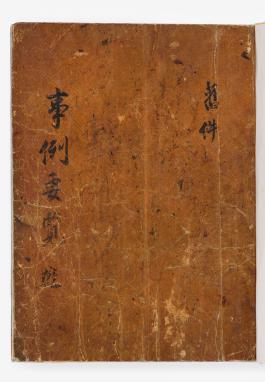 舊件
事例要覽